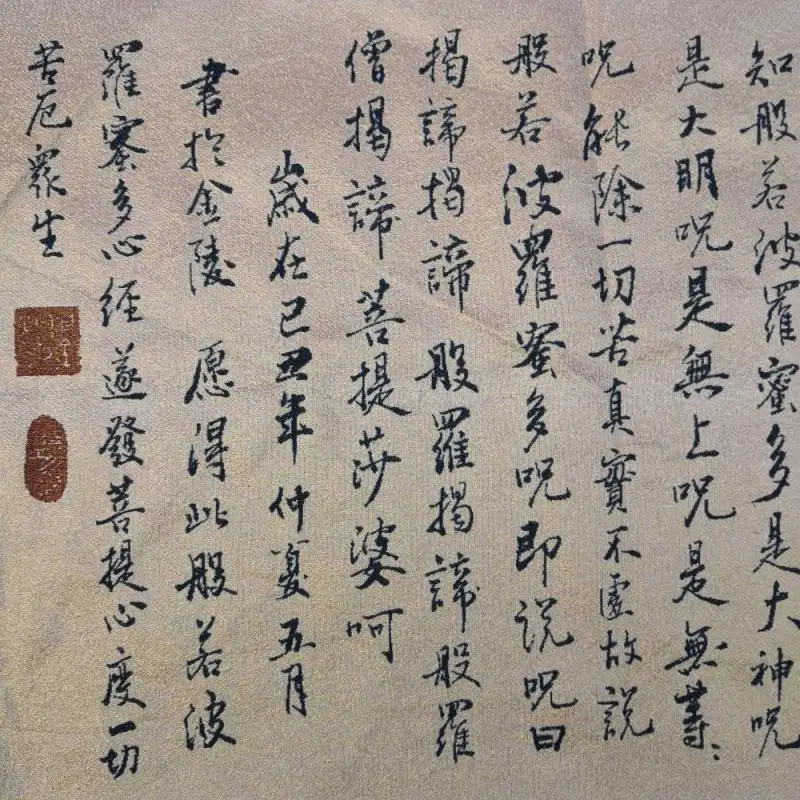 知般若波羅蜜多是大神咒
是大明咒是無上咒是無等:
咒能除一切苦真實不虛故說
般若波羅蜜多咒即説咒曰
揭諦揭諦 般羅揭諦般羅
僧揭諦 菩提莎婆呵
歲在己丑年仲夏五月
書於金陵 愿得此般若波
羅蜜多心經遂發菩提心度一切
苦厄眾生